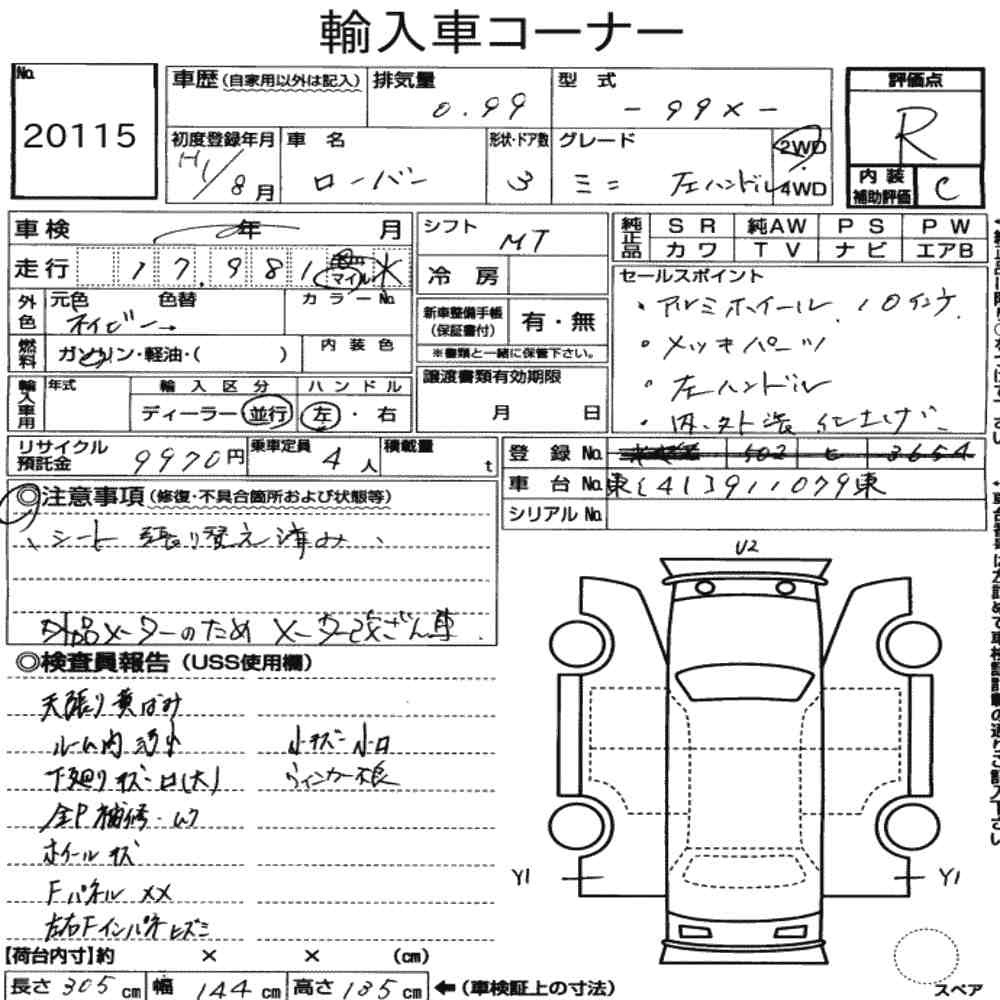 輸入車コーナー
No. 20115
車歴(自家用以外は記入) 排気量 0.99 型式 -99X- 評価点 R
初度登録年月 H1/8月 車名 ローバー 形状・ドア数 3 グレード ミニ 左ハンドル 2WD 4WD
内装補助評価 C
車検 年 月
走行 17,981 マイル ※
シフト MT
冷房
純正品 SR 純AW PS PW
カワ TV ナビ エアB
外色 元色 色替 カラーNo.
ネイビー→
燃料 ガソリン・軽油・( ) 内装色
新車整備手帳(保証書付) 有・無
※書類と一緒に保管下さい。
セールスポイント
・アルミホイール 10インチ
・メッキパーツ
・左ハンドル
・内、外装仕上げ
輸入車用 年式 輸入区分 ハンドル
ディーラー 並行 左・右
譲渡書類有効期限
月 日
リサイクル預託金 9970円 乗車定員 4人 積載量 t
登録No. 502 ヒ 3654
車台No. 東[41]3911079東
シリアルNo.
◎注意事項(修復・不具合箇所および状態等)
シート張り替え済み
外品メーターのため メーター改ざん車
◎検査員報告(USS使用欄)
天張り黄ばみ
ルーム内汚れ 小キズ小ロ
下廻りキズロ(大) ウィンカー不良
全P補修・ムラ
ホイールキズ
Fパネル XX
左右Fインパネヒズミ
U2
Y1 Y1
【荷台内寸】約 × × (cm)
長さ 305cm 幅 144cm 高さ 135cm ←(車検証上の寸法)
スペア